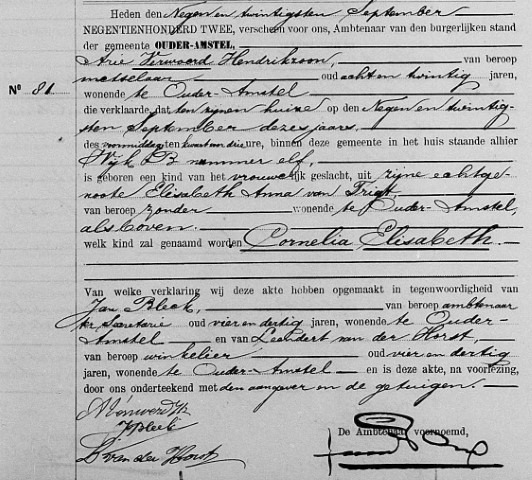 Heden den Negen en twintigsten September
NEGENTIENHONDERD TWEE, verscheen voor ons, Ambtenaar van den burgerlijken stand
der gemeente OUDER-AMSTEL,
Arie Verwoerd Hendrikzoon, van beroep
metselaar oud acht en twintig jaren,
No 81.
wonende te Ouder-Amstel
die verklaarde, dat ten zijnen huize op den Negen en twintig-
sten September dezes jaars
des voormiddags ten kwart voor drie ure, binnen deze gemeente in het huis staande alhier
Wijk B nummer elf,
is geboren een kind van het vrouwelijk geslacht, uit zijne echtge-
noote Elisabeth Anna van Trigt
van beroep zonder wonende te Ouder-Amstel,
als boven.
welk kind zal genaamd worden Cornelia Elisabeth.
Van welke verklaring wij deze akte hebben opgemaakt in tegenwoordigheid van
Jan Bleek, van beroep ambtenaar
ter Secretarie oud vier en dertig jaren, wonende te Ouder-
Amstel en van Leendert van der Horst,
van beroep winkelier oud vier en dertig
jaren, wonende te Ouder-Amstel en is deze akte, na voorlezing,
door ons onderteekend met den aangever en de getuigen.
A Verwoerd Hz
J Bleek
L van der Horst
De Ambtenaar voornoemd,